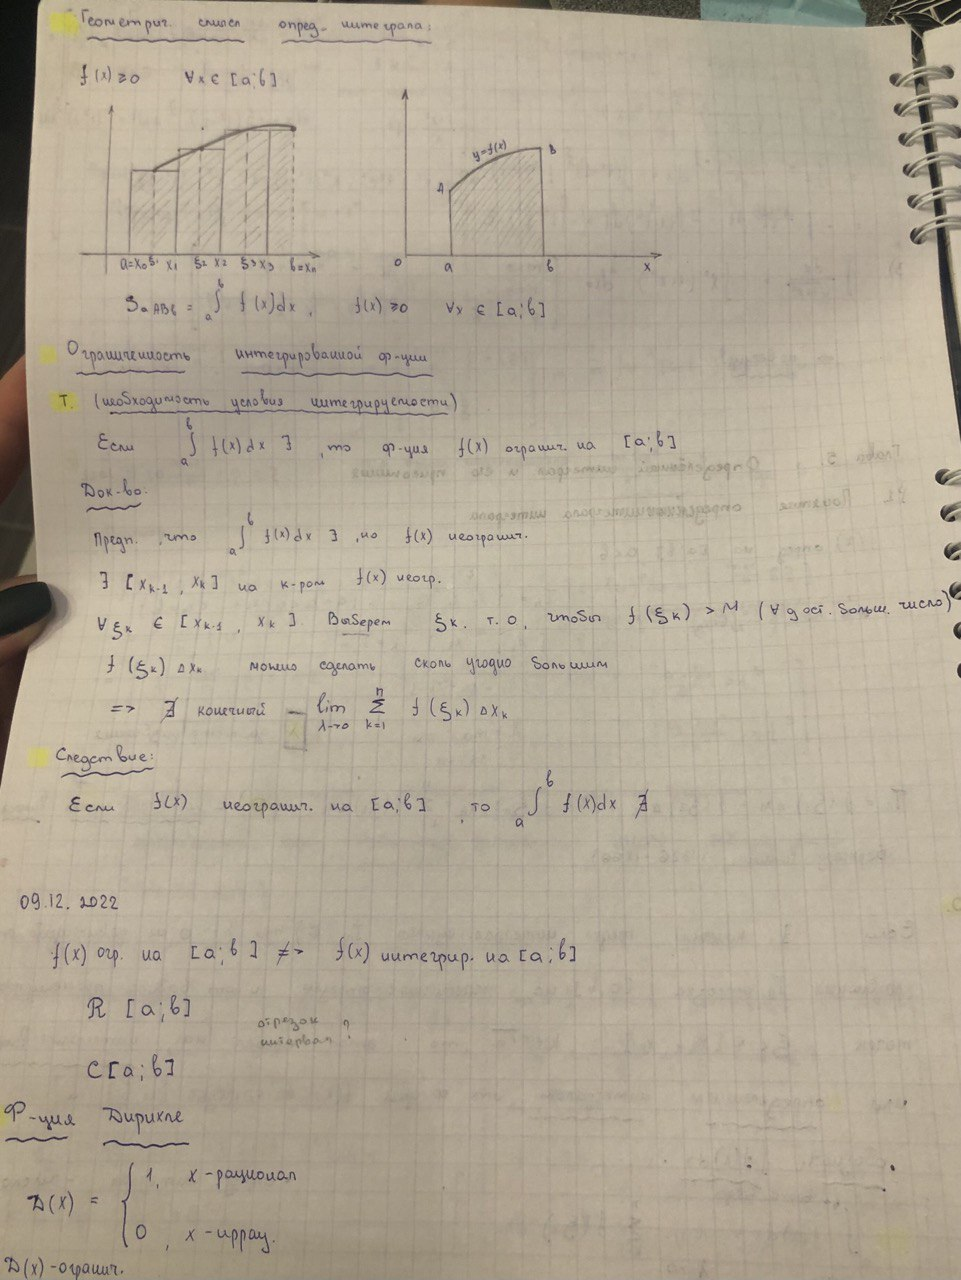 Геометрич. смысл опред. интеграла:
f(x) ≥ 0 ∀x ∈ [a;b]
y=f(x)
A
B
a=x₀ ξ₁ x₁ ξ₂ x₂ ξ₃ x₃ b=xₙ
0 a b x
S aABb = ∫ₐᵇ f(x)dx, f(x) ≥ 0 ∀x ∈ [a;b]
Ограниченность интегрированной ф-ции
Т. (необходимость условия интегрируемости)
Если ∫ₐᵇ f(x)dx ∃, то ф-ция f(x) огранич. на [a;b]
Док-во.
Предп., что ∫ₐᵇ f(x)dx ∃, но f(x) неогранич.
∃ [xₖ₋₁, xₖ] на к-ром f(x) неогр.
∀ξₖ ∈ [xₖ₋₁, xₖ]. Выберем ξₖ т.о, чтобы f(ξₖ) > M (∀ дост. больш. число)
f(ξₖ) Δxₖ можно сделать сколь угодно большим
=> ∄ конечный lim λ→0 Σ k=1 n f(ξₖ) Δxₖ
Следствие:
Если f(x) неогранич. на [a;b], то ∫ₐᵇ f(x)dx ∄
09.12.2022
f(x) огр. на [a;b] ≠> f(x) интегрир. на [a;b]
R [a;b]
отрезок
интервал ?
C[a;b]
Ф-ция Дирихле
D(x) = { 1, x - рационал
0, x - иррац.
D(x) - огранич.